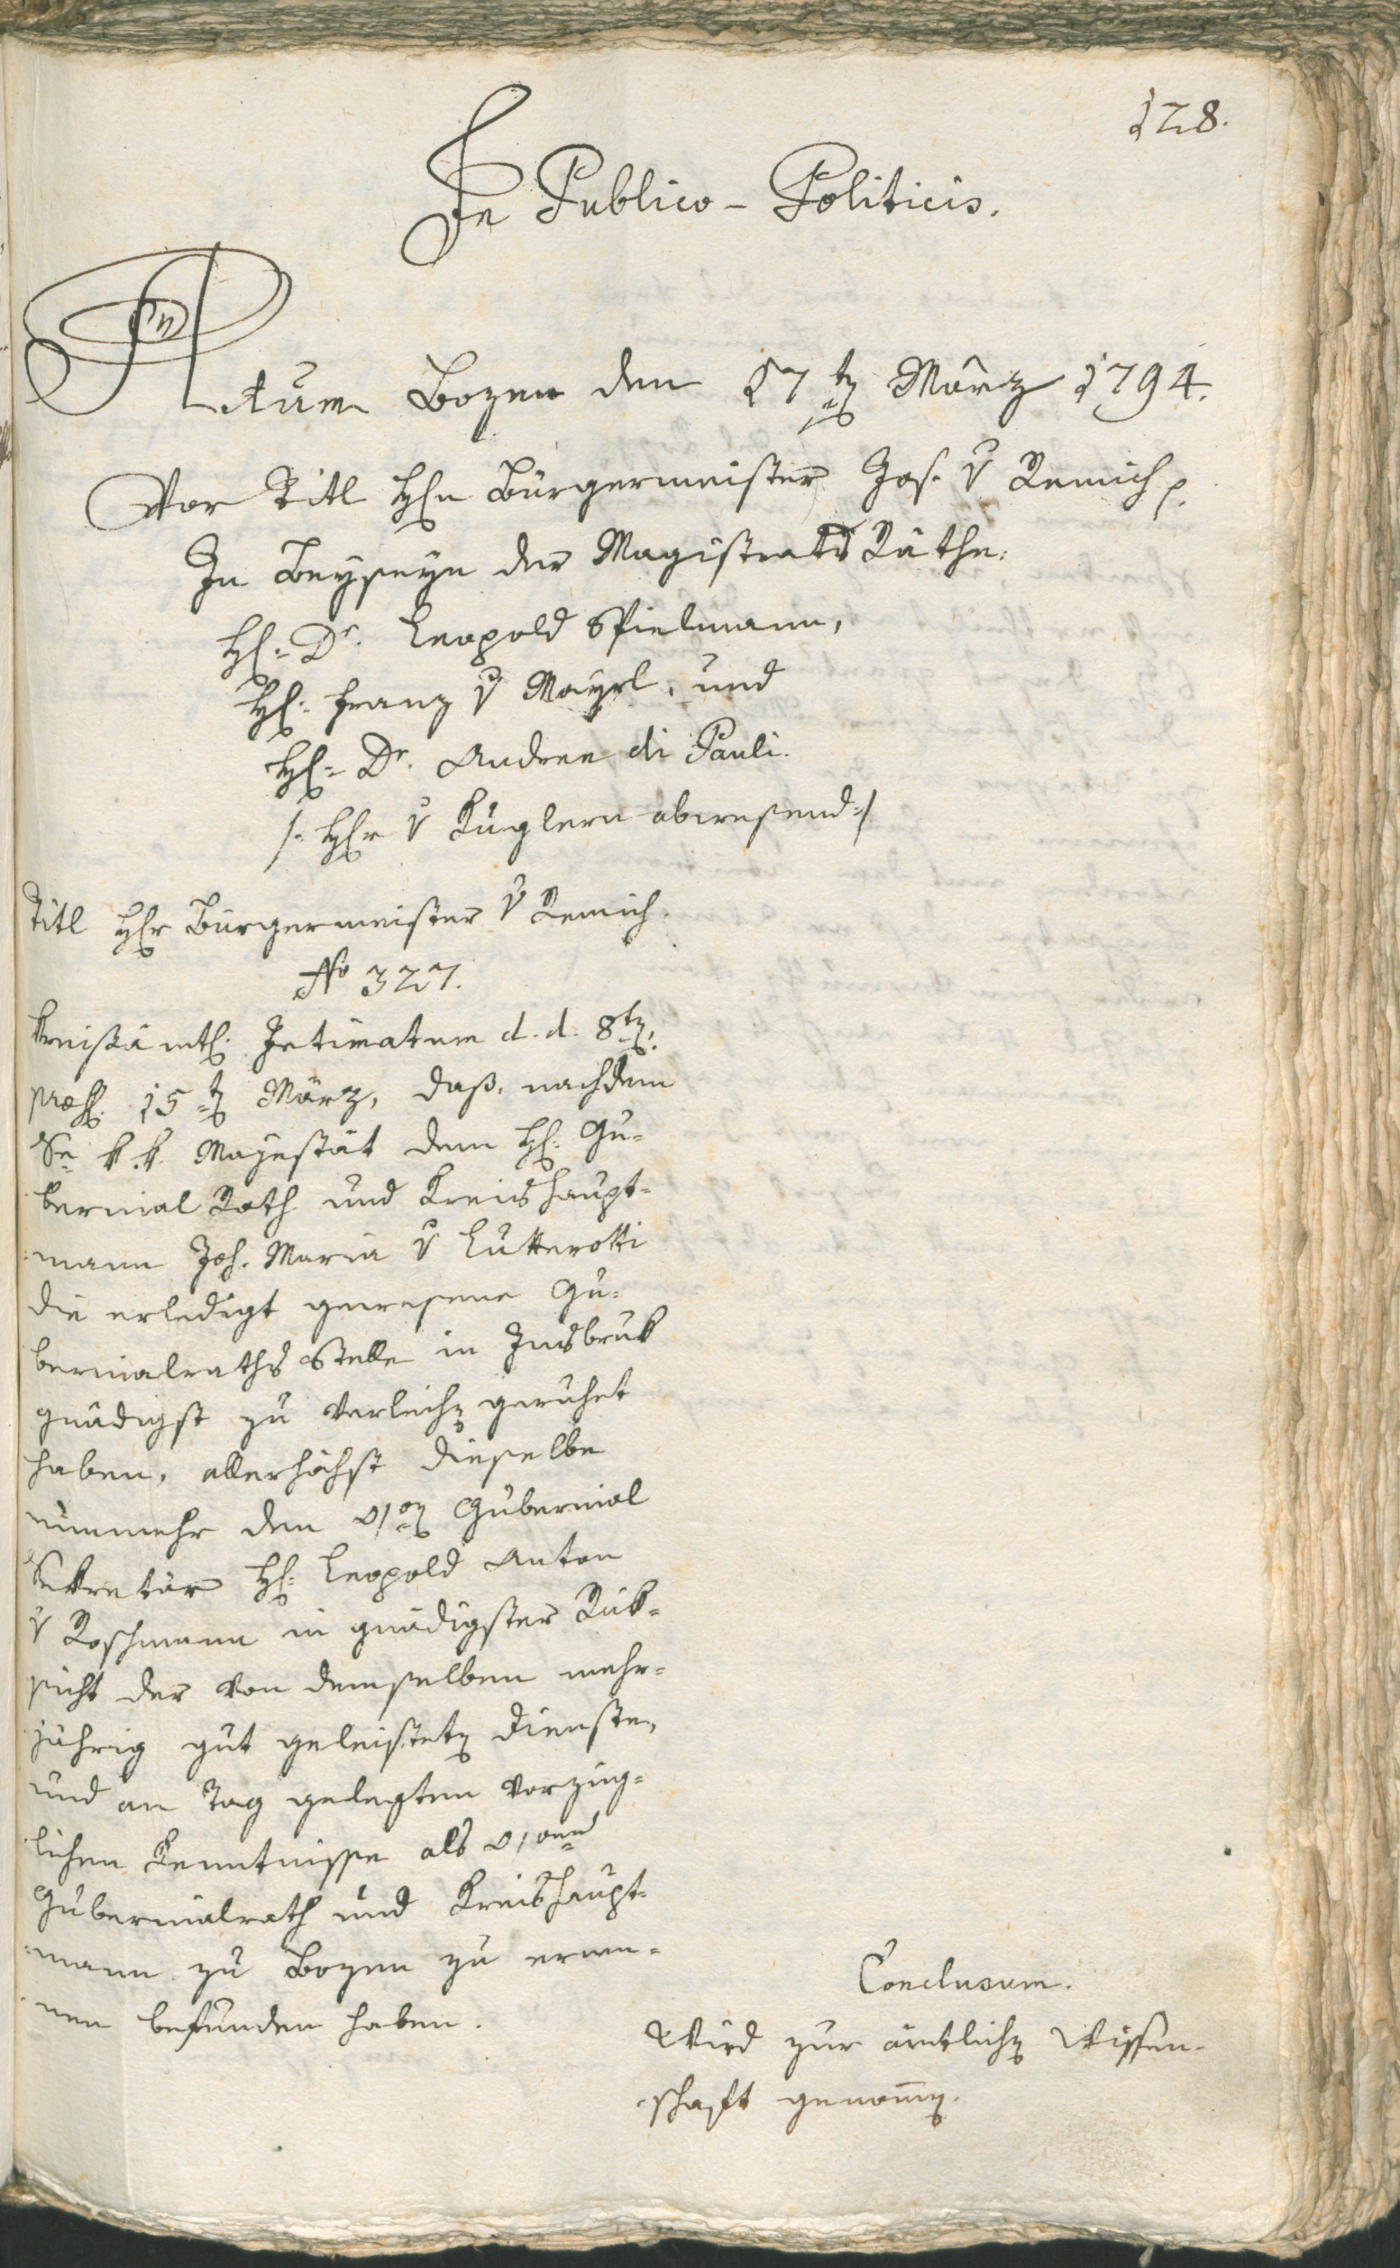 128.
In Publico-Politicis.
Actum Bozen den 17ten März 1794.
Vor Titl Hhn Bürgermeister Jos. v Remich p.
In Beyseyn der Magistrats Räthe.
H: Dr. Leopold Spielmann,
H: Franz v Mayrl, und
H: Dr. Andree di Pauli.
/: Hr v Kuglern abwesend :/
Titl Hr Bürgermeister v Remich.
No 327.
Kreisämtl. Intimatum d. d. 8ten,
praes. 15ten März, daß, nachdem
Se k. k. Mayestät dem H: Gu-
bernial Rath und Kreishaupt-
mann Joh. Maria v Lutterotti
die erledigt gewesene Gu-
bernialraths Stelle in Insbruk
gnädigst zu verleihen geruhet
haben, allerhöchst dieselbe
nunmehr den Gubernial
Sekretär H: Leopold Anton
v Roschmann in gnädigster Rük-
sicht der von demselben mehr-
jährig gut geleisteten Dienste,
und an Tag gelegten vorzüg-
lichen Kenntnisse als
Gubernialrath und Kreishaupt-
mann zu Bozen zu ernen-
nen befunden haben.
Conclusum.
Wird zur ämtlichen Wissen-
schaft genommen.